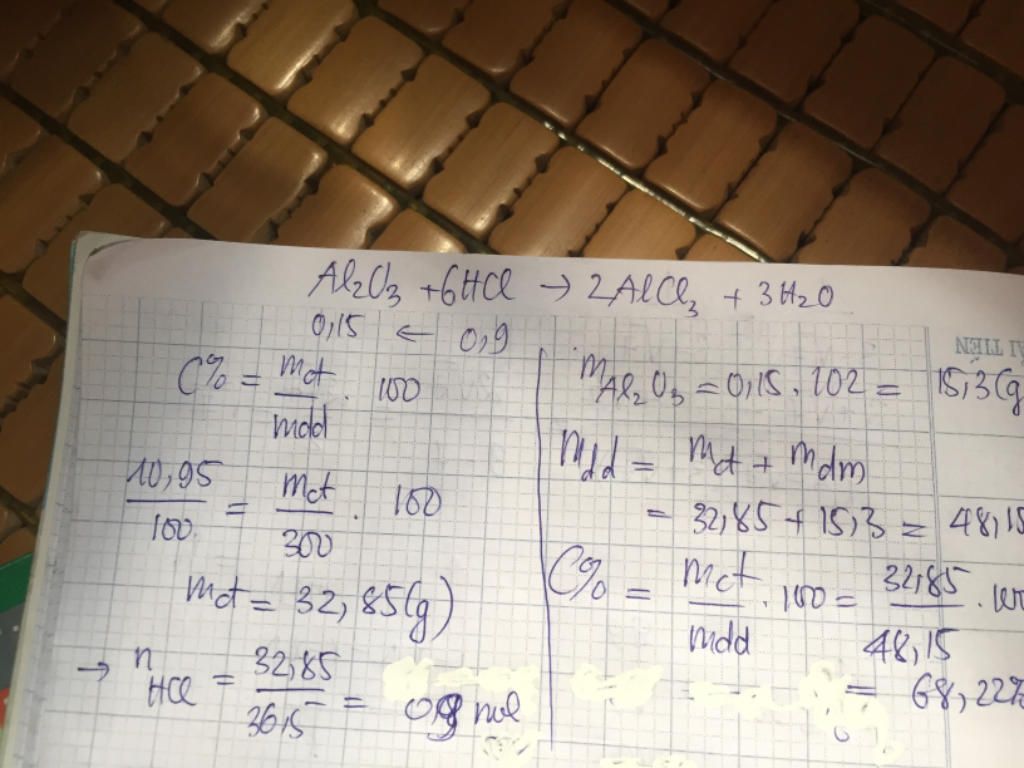 Al2O3 + 6HCl → 2AlCl3 + 3H2O
0,15 ← 0,9
C% = mct/mdd . 100
10,95/100 = mct/300 . 100
mct = 32,85(g)
→ nHCl = 32,85/36,5 = 0,9 mol
mAl2O3 = 0,15 . 102 = 15,3(g
mdd = mct + mdm
= 32,85 + 15,3 = 48,15
C% = mct/mdd . 100 = 32,85/48,15 . 100
= 68,22%
TIẾN